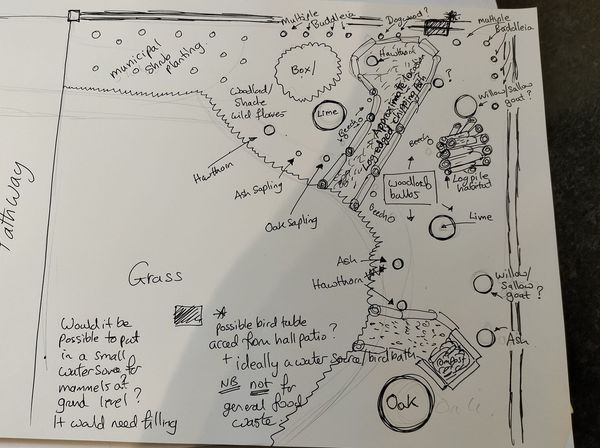 Multiple
Buddleia
Dogwood?
*
multiple
Buddleia
municipal
shrub planting
Hawthorn
Box/
?
Woodland/
Shade
wild flowers
Lime
Beech
x8
Approximate location
Log edged chipping path
Willow/Sallow
goat?
Beech
Hawthorn
Ash Sapling
Oak Sapling
woodland
bulbs
Log pile
habitat
Beech
Lime
Pathway
Ash
Hawthorn
Grass
Willow/
Sallow
goat?
Ash
Would it be
possible to put
in a small
water source for
mammels at
grand level?
It would need filling
*
possible bird table
acced from hall patio?
+ ideally a water source/bird bath
NB not for
general food
waste
compost
Oak
Oak